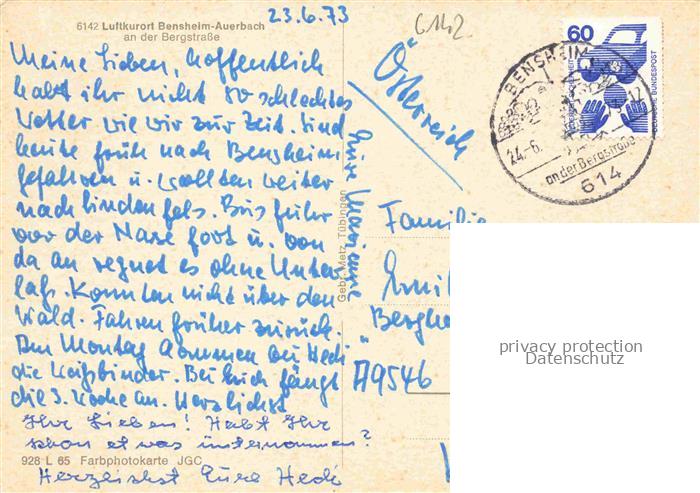 23.6.73
6142
6142 Luftkurort Bensheim-Auerbach
an der Bergstraße
Meine Lieben, hoffentlich
habt ihr nicht so schlechtes
Wetter wie wir zur Zeit. Sind
heute früh nach Bensheim
gefahren u. wollten weiter
nach Lindenfels. Bus fuhr
vor der Nase fort u. von
da an regnet es ohne Unter-
laß. Konnten nicht über den
Wald. Fahren früher zurück.
Am Montag kommen bei Hedi
die Weißbinder. Bei Euch fängt
die 3. Woche an. Herzlichst
Eure Marianne
Ihr Lieben! Habt Ihr
schon etwas unternommen?
Herzlichst Eure Hedi
928 L 65 Farbphotokarte JGC
Gebr. Metz, Tübingen
Österreich
60
DEUTSCHE BUNDESPOST
BENSHEIM
24.-6.
12
an der Bergstraße
614
Familie
Emil
"Bergho
A9546
privacy protection
Datenschutz